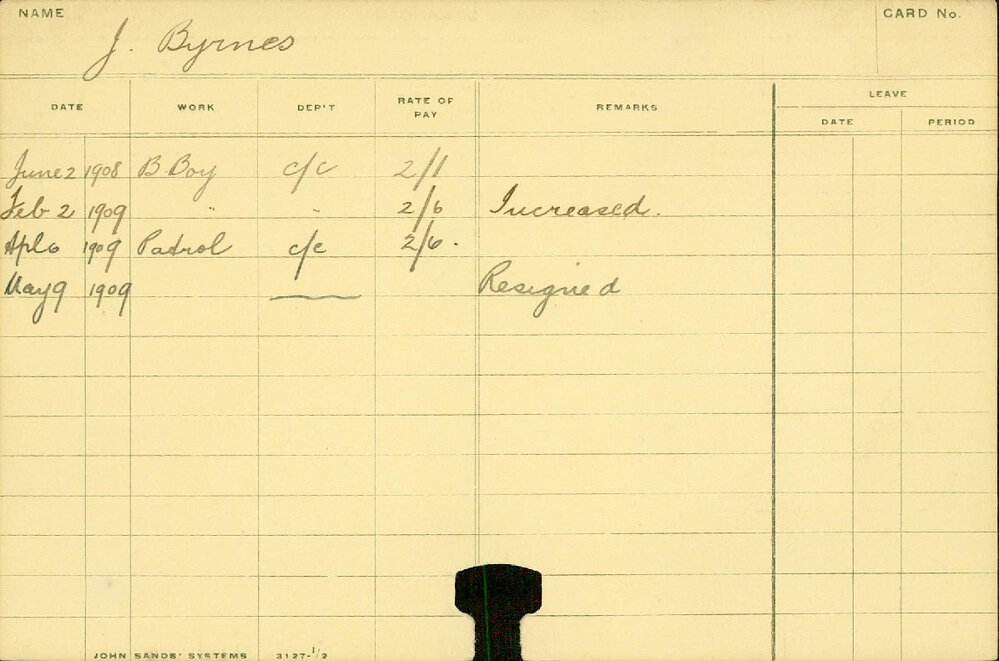 NAME
CARD No.
J. Byrnes
DATE WORK DEP'T RATE OF PAY REMARKS LEAVE
DATE PERIOD
June 2 1908 B. Boy c/c 2/1
Feb 2 1909 " " 2/6 Increased.
Apl 6 1909 Patrol c/c 2/6.
May 9 1909 — Resigned
JOHN SANDS' SYSTEMS 3127-1/2